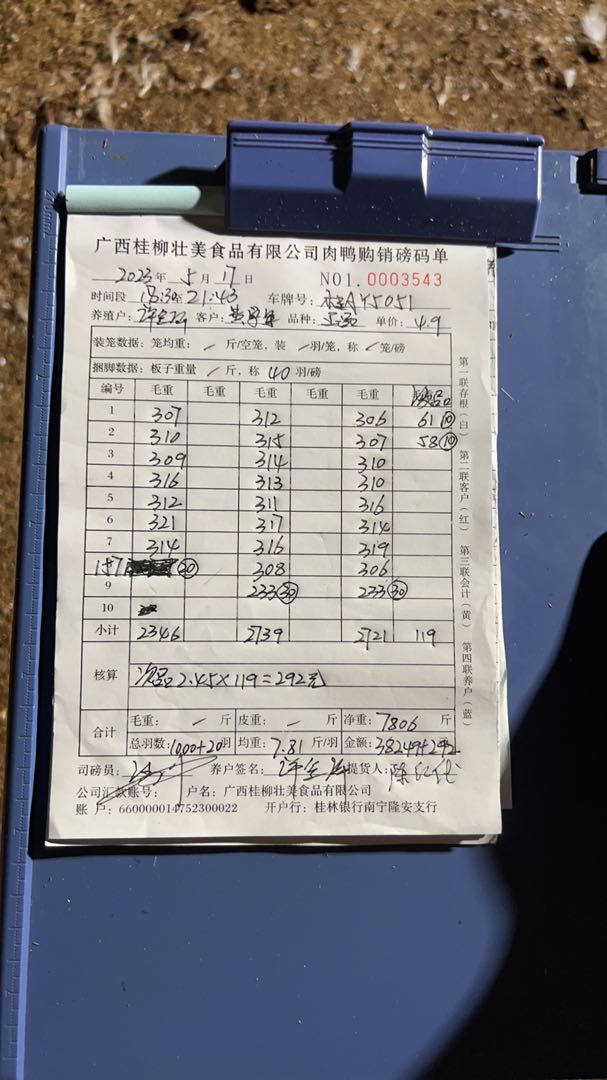 广西桂柳壮美食品有限公司肉鸭购销磅码单
2023年 5月 17日 NO1.0003543
时间段 18:30至21:43 车牌号: AY5051
养殖户: 客户: 品种: 单价: 4.9
装笼数据: 笼均重: / 斤/空笼, 装 / 羽/笼, 称 / 笼/磅
捆脚数据: 板子重量 / 斤, 称 40 羽/磅
编号 毛重 毛重 毛重 毛重 毛重 次品
1 307 312 306 61⑩
2 310 315 307 58⑩
3 309 314 310
4 316 313 310
5 312 311 316
6 321 317 314
7 314 316 319
157 ㉚ 308 306
9 233㉚ 233㉚
10
小计 2346 2739 2721 119
核算 次品2.45×119=292元
合计 毛重: / 斤 皮重: / 斤 净重: 7806 斤
总羽数: 1000+20羽 均重: 7.81 斤/羽 金额: 38249+292元
司磅员: 养户签名: 提货人:
公司汇款账号: 户名: 广西桂柳壮美食品有限公司
账户: 660000014752300022 开户行: 桂林银行南宁隆安支行
第一联存根(白) 第二联客户(红) 第三联会计(黄) 第四联养户(蓝)